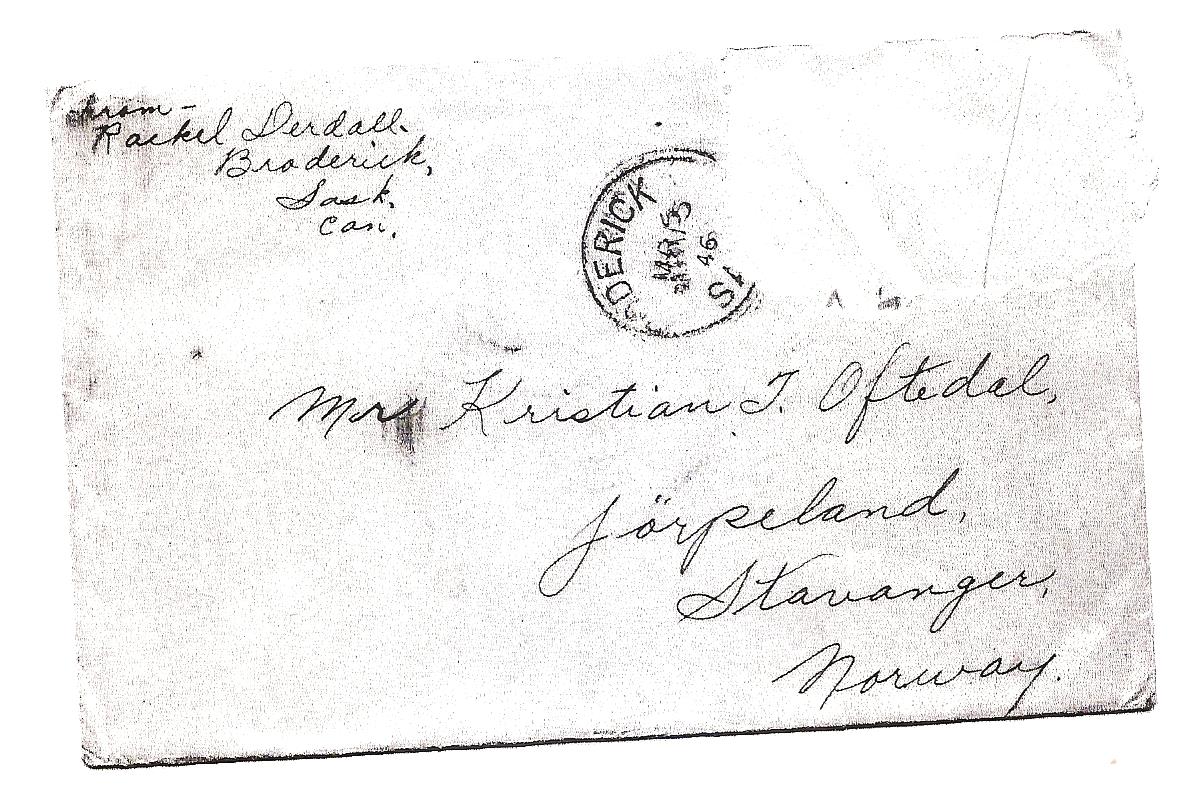 From -
Rackel Derdall.
Broderick,
Sask.
Can.
DERICK
MR 15
46
Mr Kristian T. Oftedal,
Jörpeland,
Stavanger,
Norway.